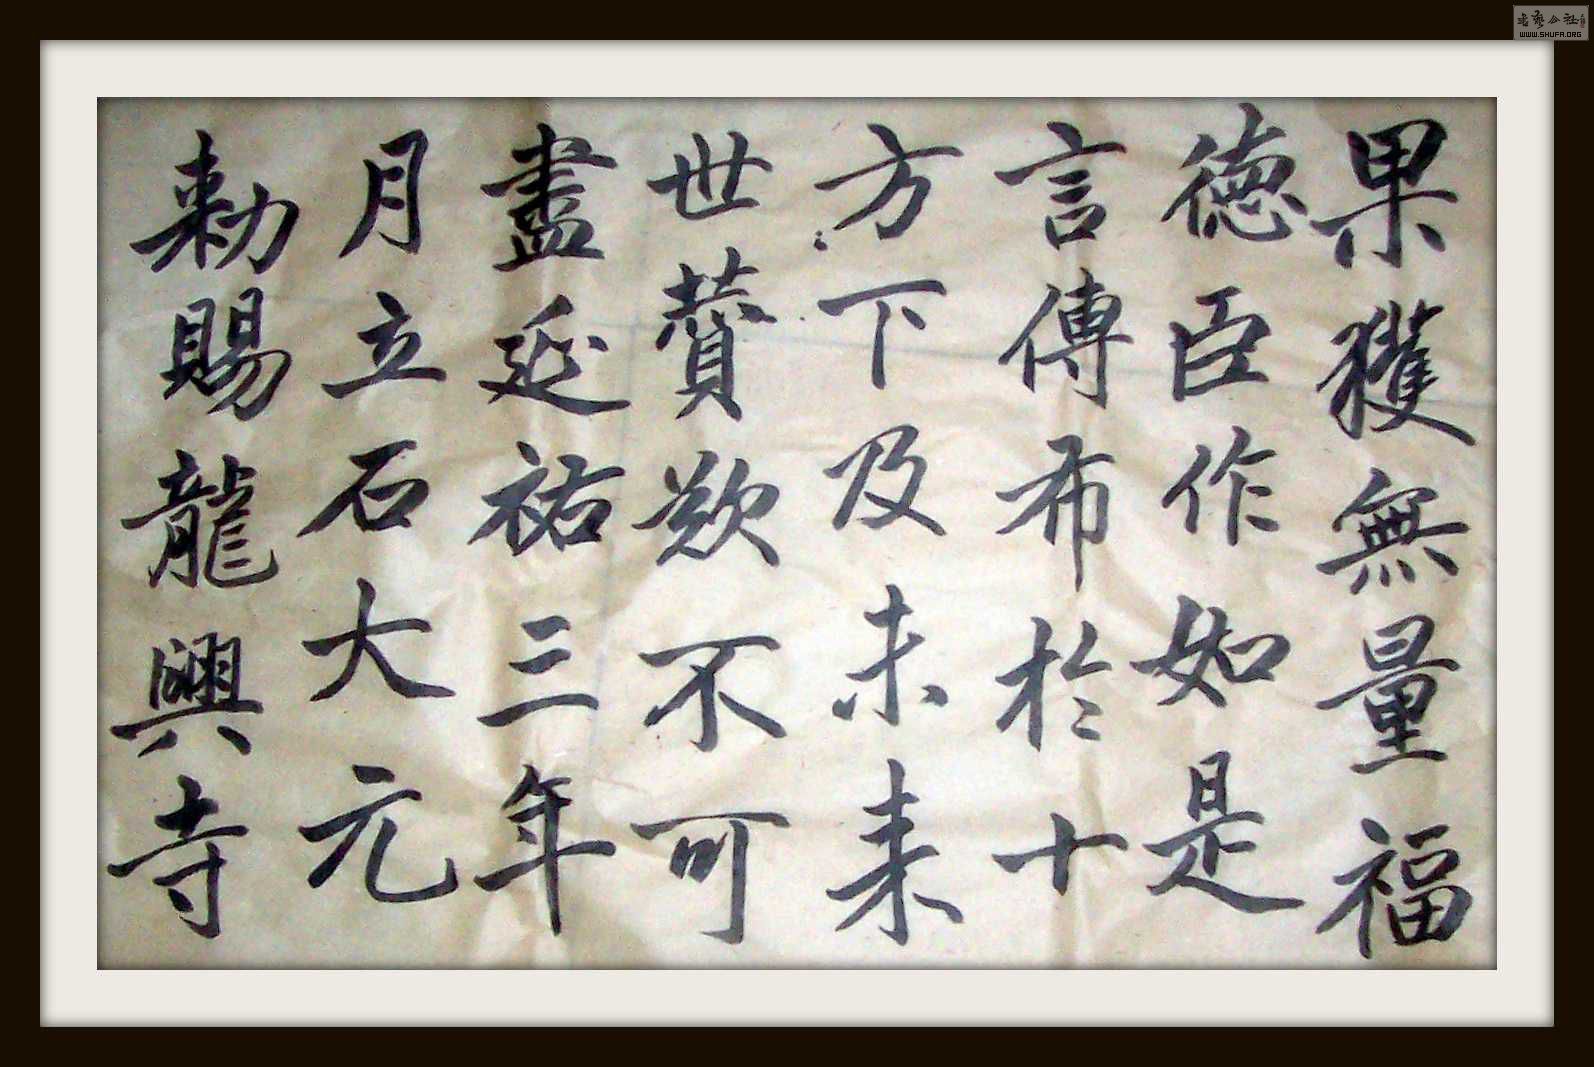 果獲無量福
德臣作如是
言傳布於十
方下及未来
世賛歎不可
盡延祐三年
月立石大元
勅賜龍興寺
書藝公社
WWW.SHUFA.ORG